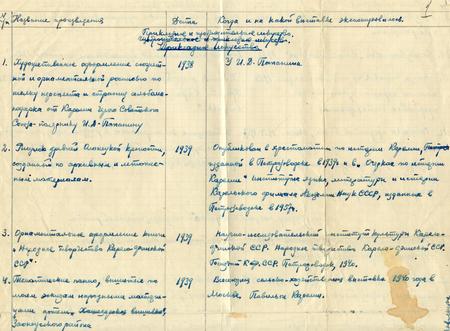 Название произведения Дата Когда и на какой выставке экспонировалось.
Прикладное искусство
1. Художественное оформление сюжет-
ной и орнаментальной росписью по
шелку портрета и страниц альбома-
подарка от Карелии Герою Советского
Союза - полярнику И.Д. Папанину
1938
У И.Д. Папанина
2. Рисунок древней Олонецкой крепости,
созданный по архивным и летопис-
ным материалам.
1939
Опубликован в хрестоматии по истории Карелии,
изданной в Петрозаводске в 1939 и в "Очерках по истории
Карелии" Института языка, литературы и истории
Карельского филиала Академии Наук СССР, изданных в
Петрозаводске в 1957г.
3. Орнаментальное оформление книги
"Народное творчество Карело-Финской
ССР"
1939
Научно-исследовательский институт культуры Карело-
Финской ССР. Народное творчество Карело-Финской ССР.
Госиздат К-Ф.ССР. Петрозаводск, 1940.
4. Тематическое панно, вышитое по
моим эскизам народными мастери-
цами артели
Заонежского района
1939
Всесоюзная сельско-хозяйственная выставка 1940 года в
Москве. Павильон Карелии.